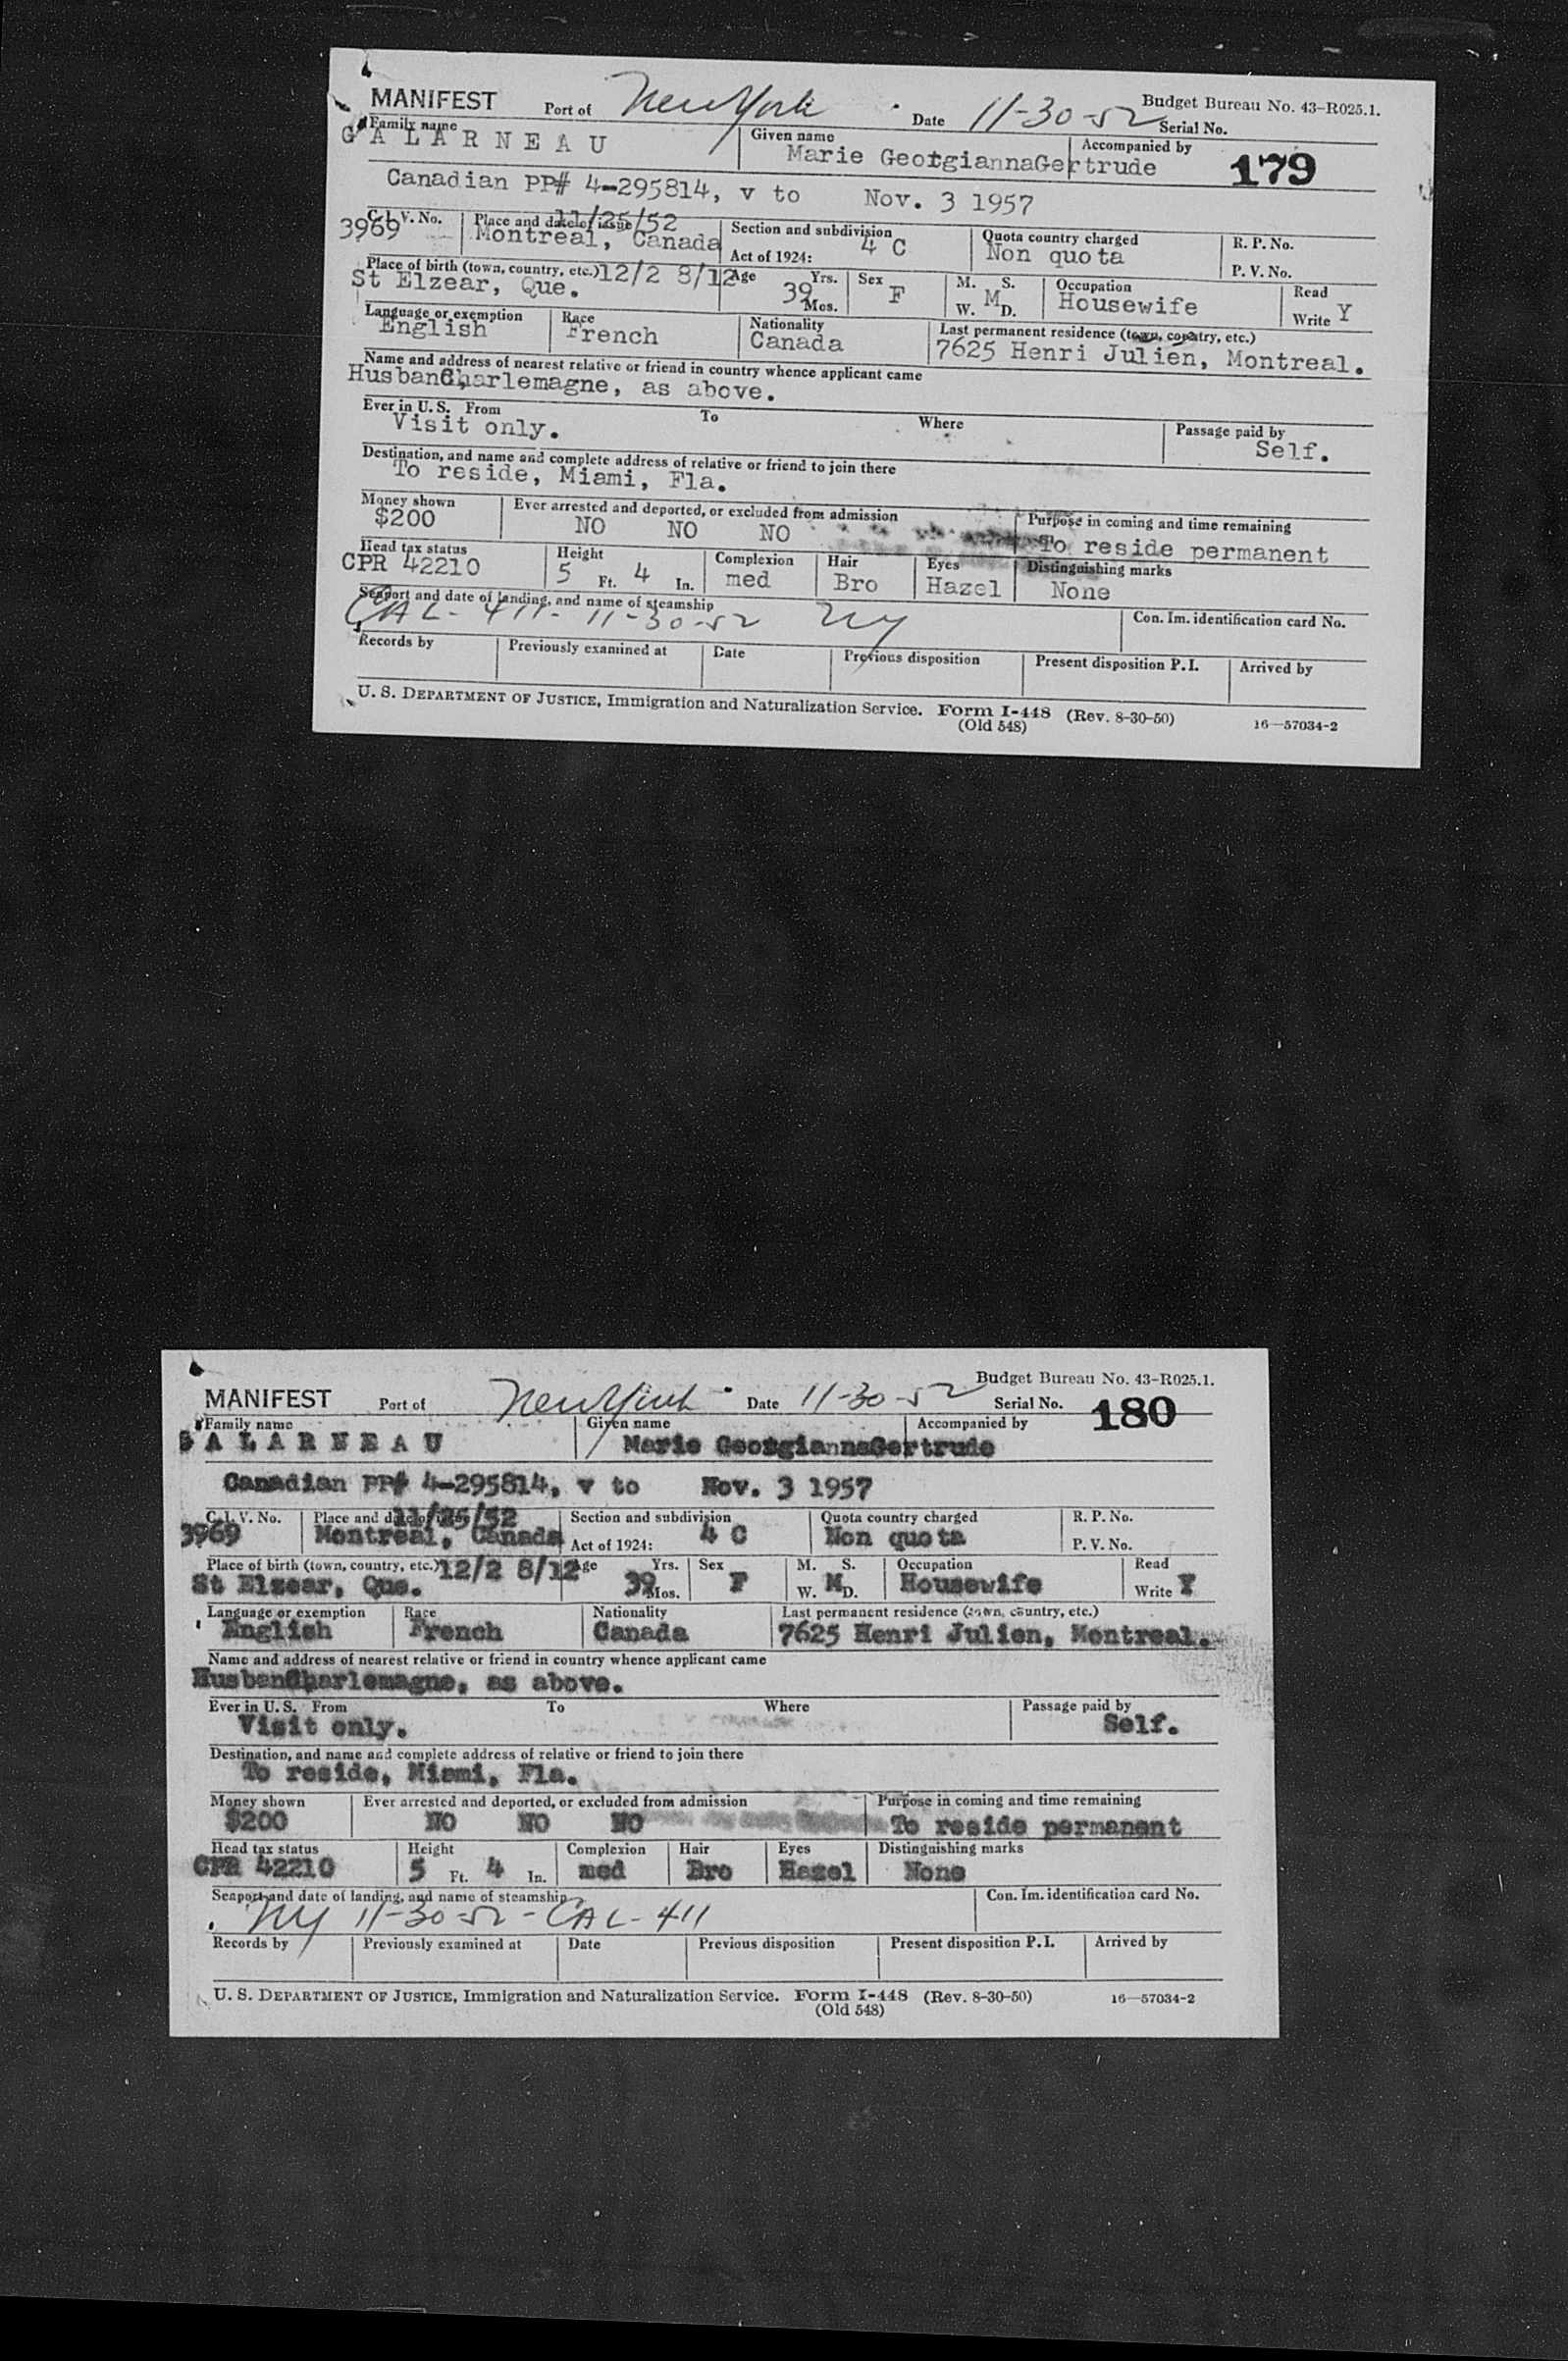 MANIFEST Port of New York Date 11-30-52 Budget Bureau No. 43-R025.1.
Serial No. 179
Family name Given name Accompanied by
GALARNEAU Marie GeorgiannaGertrude
Canadian PP# 4-295814, v to Nov. 3 1957
C.I.V. No. Place and date of issue 11/25/52 Section and subdivision Quota country charged R. P. No.
3969 Montreal, Canada Act of 1924: 4 C Non quota P. V. No.
Place of birth (town, country, etc.) 12/2 8/12 Age Yrs. Sex M. S. Occupation Read
St Elzear, Que. 39 Mos. F W. M D. Housewife Write Y
Language or exemption Race Nationality Last permanent residence (town, country, etc.)
English French Canada 7625 Henri Julien, Montreal.
Name and address of nearest relative or friend in country whence applicant came
Husband, Charlemagne, as above.
Ever in U. S. From To Where Passage paid by
Visit only. Self.
Destination, and name and complete address of relative or friend to join there
To reside, Miami, Fla.
Money shown Ever arrested and deported, or excluded from admission Purpose in coming and time remaining
$200 NO NO NO To reside permanent
Head tax status Height Complexion Hair Eyes Distinguishing marks
CPR 42210 5 Ft. 4 In. med Bro Hazel None
Seaport and date of landing, and name of steamship Con. Im. identification card No.
CAL- 411- 11-30-52 NY
Records by Previously examined at Date Previous disposition Present disposition P.I. Arrived by
U. S. DEPARTMENT OF JUSTICE, Immigration and Naturalization Service. Form I-448 (Rev. 8-30-50) 16—57034-2
(Old 548)
Budget Bureau No. 43-R025.1.
MANIFEST Port of New York Date 11-30-52 Serial No. 180
Family name Given name Accompanied by
GALARNEAU Marie GeorgiannaGertrude
Canadian PP# 4-295814, v to Nov. 3 1957
C.I.V. No. Place and date of issue 11/25/52 Section and subdivision Quota country charged R. P. No.
3969 Montreal, Canada Act of 1924: 4 C Non quota P. V. No.
Place of birth (town, country, etc.) 12/2 8/12 Age Yrs. Sex M. S. Occupation Read
St Elzear, Que. 39 Mos. F W. M D. Housewife Write Y
Language or exemption Race Nationality Last permanent residence (town, country, etc.)
English French Canada 7625 Henri Julien, Montreal.
Name and address of nearest relative or friend in country whence applicant came
Husband, Charlemagne, as above.
Ever in U. S. From To Where Passage paid by
Visit only. Self.
Destination, and name and complete address of relative or friend to join there
To reside, Miami, Fla.
Money shown Ever arrested and deported, or excluded from admission Purpose in coming and time remaining
$200 NO NO NO To reside permanent
Head tax status Height Complexion Hair Eyes Distinguishing marks
CPR 42210 5 Ft. 4 In. med Bro Hazel None
Seaport and date of landing, and name of steamship Con. Im. identification card No.
NY 11-30-52 - CAL- 411
Records by Previously examined at Date Previous disposition Present disposition P.I. Arrived by
U. S. DEPARTMENT OF JUSTICE, Immigration and Naturalization Service. Form I-448 (Rev. 8-30-50) 16—57034-2
(Old 548)